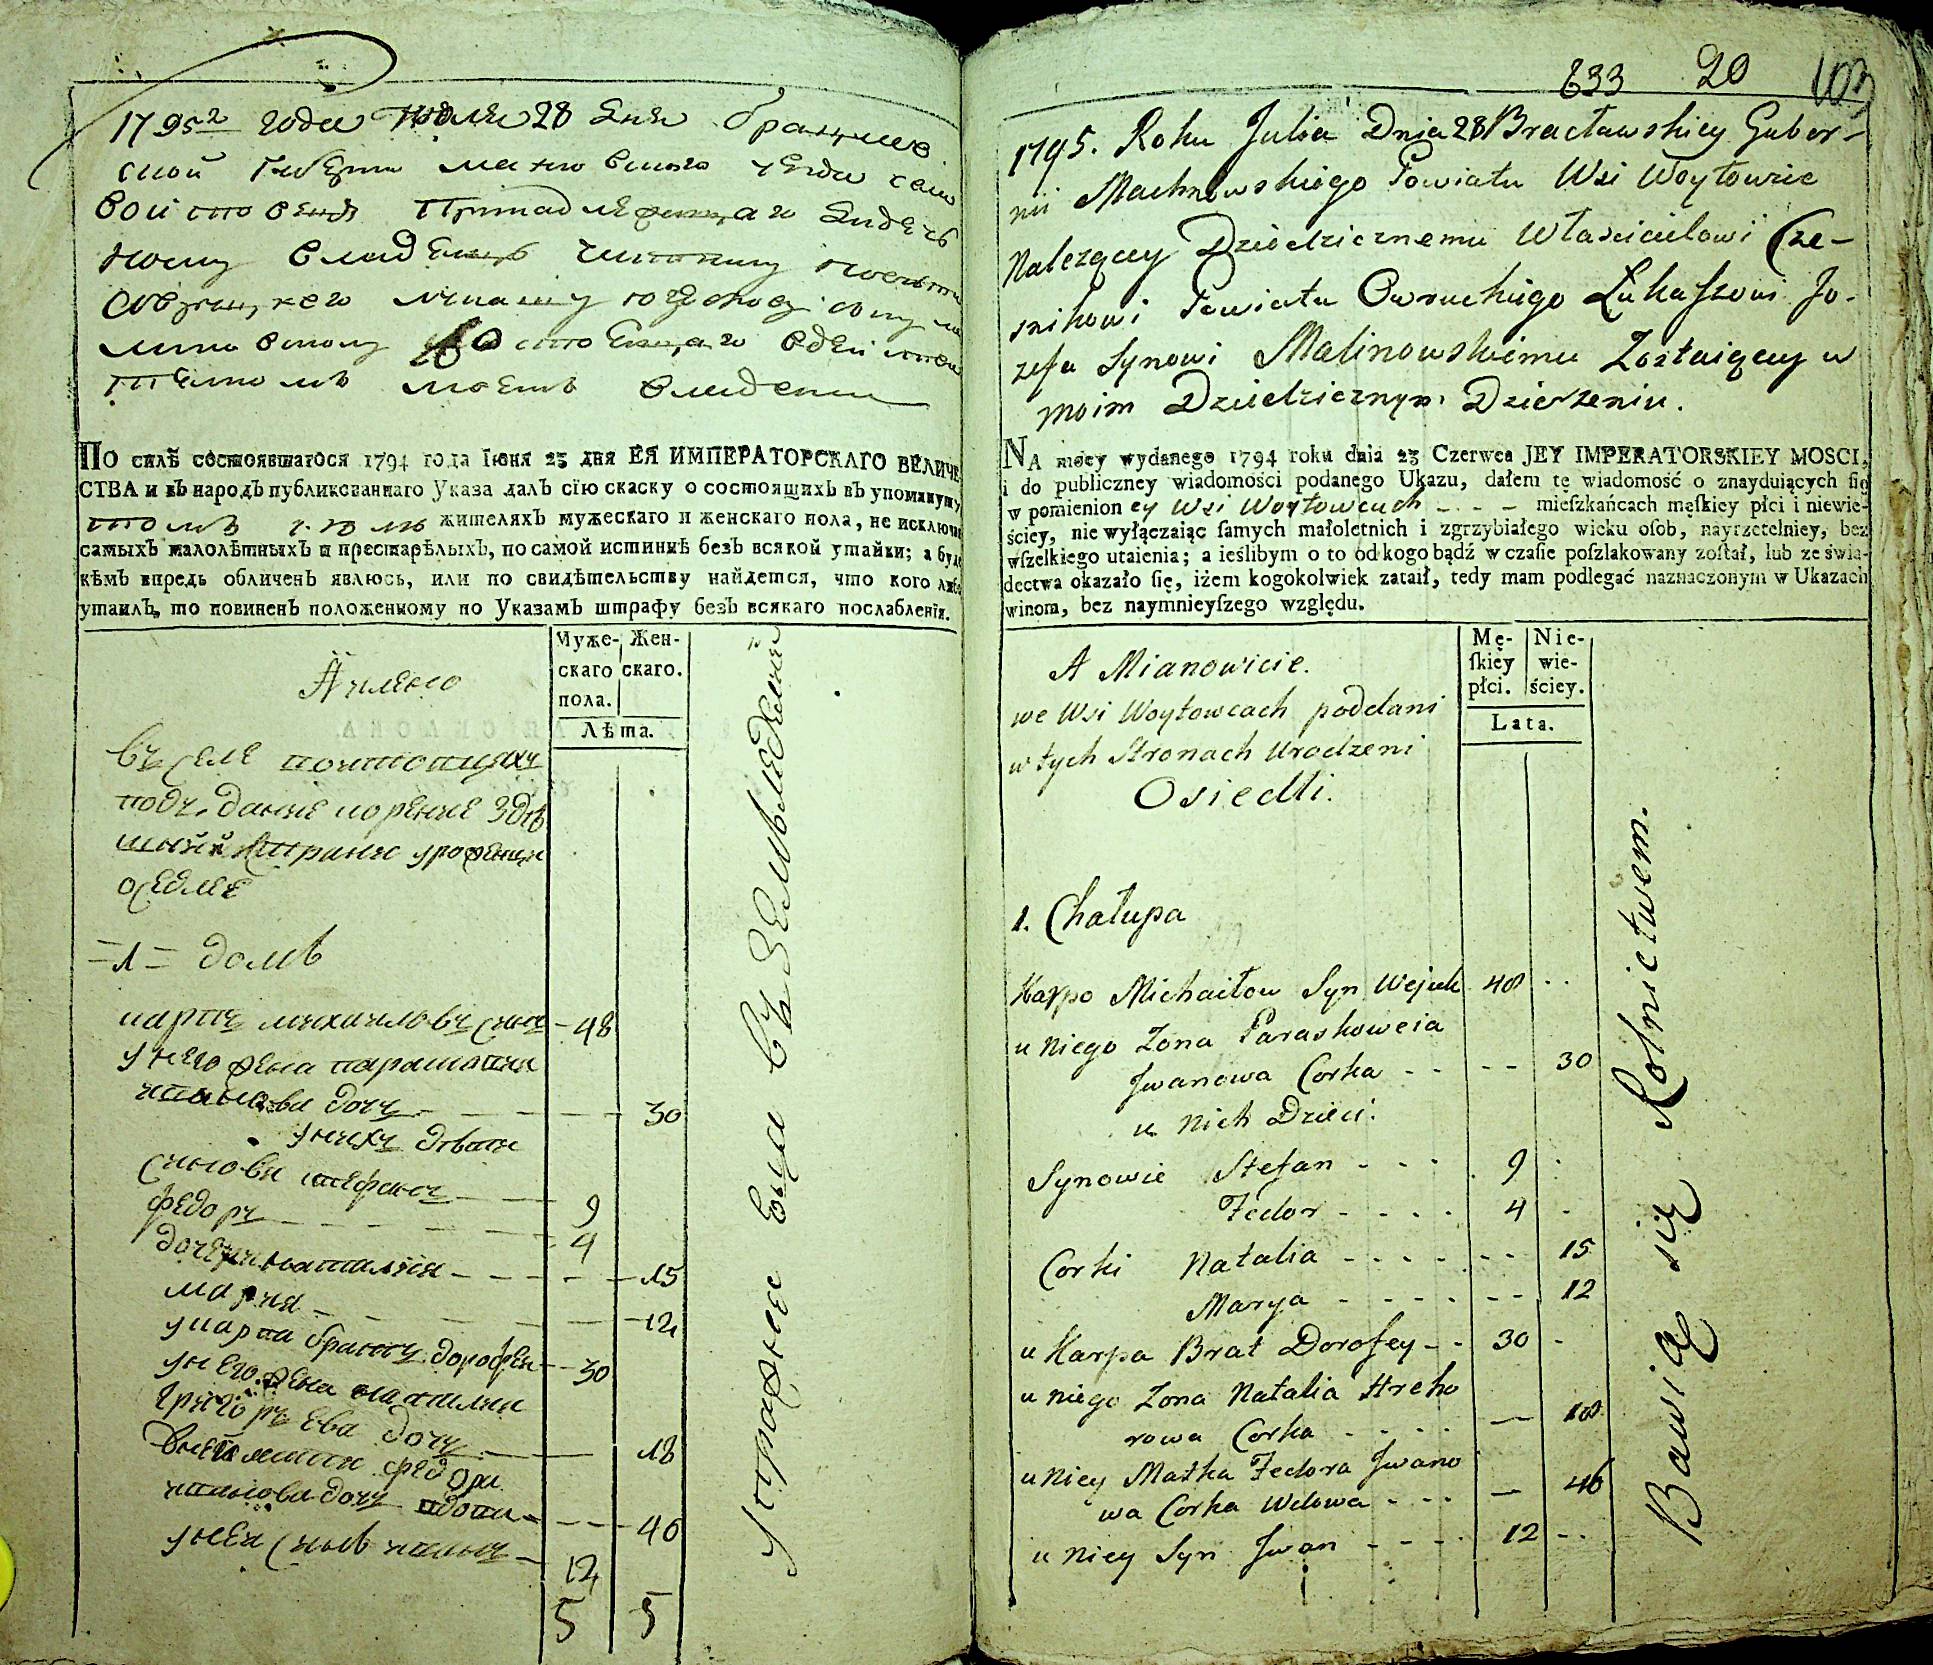 1795 года июля 28 дня брацлав
ской губерни махновского уезда села
владени
По силѣ состоявшагося 1794 года Іюня 23 дня ЕЯ ИМПЕРАТОРСКАГО ВЕЛИЧЕ
СТВА и въ народъ публикованнаго Указа далъ сію скаску о состоящихъ въ упомянуту
жителяхъ мужескаго и женскаго пола, не исключая
самыхъ малолѣтныхъ и престарѣлыхъ, по самой истиннѣ безъ всякой утайки; а буде
кѣмъ впредь обличенъ явлюсь, или по свидѣтельству найдется, что кого либо
утаилъ, то повиненъ положенному по Указамъ штрафу безъ всякаго послабленія.
Муже-
скаго
пола.
Жен-
скаго.
Лѣта.
Аимено
въ селе
оседлие
=1= домъ
карпъ михайловъ синъ - 48
у него жена параскивия
иванова дочъ - - - 30
у нихъ дѣти
синови стефанъ - - 9
федоръ - - - 4
дочери наталия - - - 15
мария - - - 12
у карпа братъ дорофей - - 30
у него жена наталия
григорьева дочъ - - 18
федора
иванова дочъ вдова - - - 46
у неи синъ иванъ - 12
5 5
упражняются въ земледелии
633 20 103
1795. Roku Julia Dnia 28 Bracławskiey Guber-
nii Machnowskiego Powiatu Wsi Woytowiec
Należącey Dziedzicznemu Właścicielowi Cze-
snikowi Powiatu Owruckiego Łukaszowi Jo-
zefa Synowi Malinowskiemu Zostaiącey w
moim Dziedzicznym Dzierżeniu.
NA mocy wydanego 1794 roku dnia 23 Czerwca JEY IMPERATORSKIEY MOSCI,
i do publiczney wiadomości podanego Ukazu, dałem tę wiadomość o znayduiących ſię
w pomienion ey Wsi Woytowcach - - - mieſzkańcach męſkiey płci i niewie-
ściey, nie wyłączaiąc ſamych małoletnich i zgrzybiałego wieku oſob, nayrzetelniey, bez
wſzelkiego utaienia; a ieślibym o to od kogo bądź w czaſie poſzlakowany zoſtał, lub ze świa-
dectwa okazało ſię, iżem kogokolwiek zataił, tedy mam podlegać naznaczonym w Ukazach
winom, bez naymnieyſzego względu.
Mę-
ſkiey
płci.
Nie-
wie-
ściey.
Lata.
A Mianowicie.
we Wsi Woytowcach poddani
w tych Stronach Urodzeni
Osiedli.
1. Chałupa
Karpo Michaiłow Syn Wejuk 48 - -
u Niego Zona Paraskoweia
Jwanowa Corka - - - - 30
u Nich Dzieci:
Synowie Stefan - - - 9 -
Fedor - - - - 4 -
Corki Natalia - - - - - - 15
Marya - - - - - - 12
u Karpa Brat Dorofey - - 30 -
u niego Zona Natalia Hreho
rowa Corka - - - - — 18
u Niey Matka Fedora Jwano
wa Corka Wdowa - - - — 46
u Niey Syn Jwan - - - - 12 - -
Bawią się Rolnictwem.